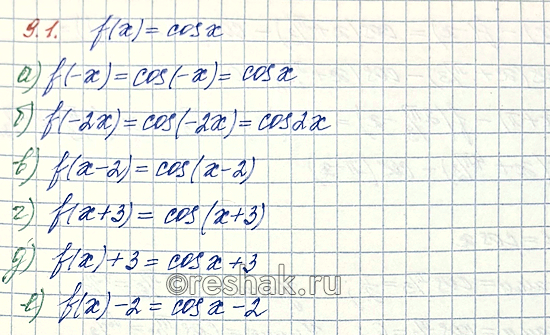 9.1. f(x) = cos x
а) f(-x) = cos(-x) = cos x
б) f(-2x) = cos(-2x) = cos 2x
в) f(x-2) = cos(x-2)
г) f(x+3) = cos(x+3)
д) f(x)+3 = cos x + 3
©reshak.ru
е) f(x)-2 = cos x - 2